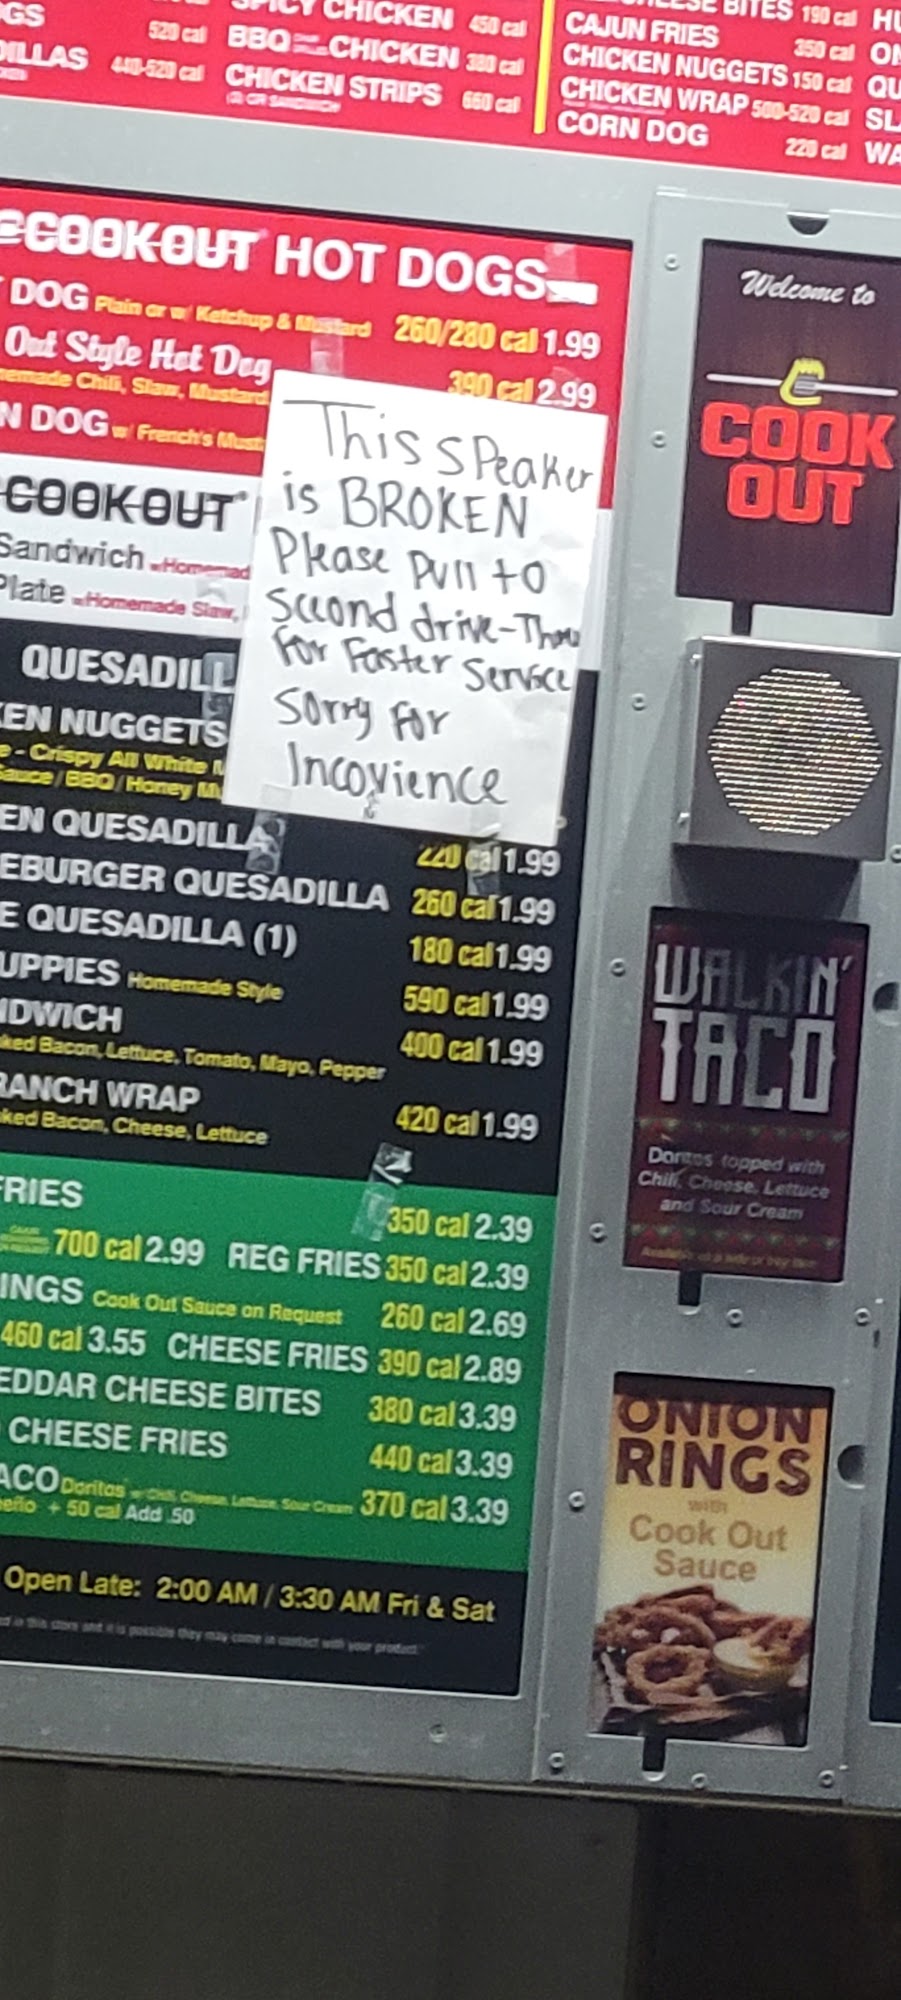 SPICY CHICKEN 450 cal
520 cal BBQ CHICKEN 380 cal
440-520 cal CHICKEN STRIPS 660 cal
(3) OR SANDWICH
BITES 190 cal
CAJUN FRIES 350 cal
CHICKEN NUGGETS 150 cal
CHICKEN WRAP 500-520 cal
CORN DOG 220 cal
COOK-OUT HOT DOGS
DOG Plain or w/ Ketchup & Mustard 260/280 cal 1.99
Out Style Hot Dog 390 cal 2.99
Chili, Slaw, Mustard
DOG w/ French's
COOK-OUT
Sandwich
Plate w/Homemade Slaw,
This SPeaker
is BROKEN
Please Pull to
second drive-Thru
For Faster Service
Sorry For
Incovience
NUGGETS
Crispy All White
Sauce / BBQ / Honey
QUESADILLA 220 cal 1.99
QUESADILLA 260 cal 1.99
QUESADILLA (1) 180 cal 1.99
Homemade Style 590 cal 1.99
400 cal 1.99
Bacon, Lettuce, Tomato, Mayo, Pepper
WRAP 420 cal 1.99
Bacon, Cheese, Lettuce
FRIES 350 cal 2.39
700 cal 2.99 REG FRIES 350 cal 2.39
Cook Out Sauce on Request 260 cal 2.69
460 cal 3.55 CHEESE FRIES 390 cal 2.89
CHEESE BITES 380 cal 3.39
CHEESE FRIES 440 cal 3.39
Doritos w/ Chili, Cheese, Lettuce, Sour Cream 370 cal 3.39
+ 50 cal Add .50
Open Late: 2:00 AM / 3:30 AM Fri & Sat
in this store and it is possible they may come in contact with your product.
Welcome to
COOK
OUT
WALKIN'
TACO
Doritos topped with
Chili, Cheese, Lettuce
and Sour Cream
ONION
RINGS
with
Cook Out
Sauce